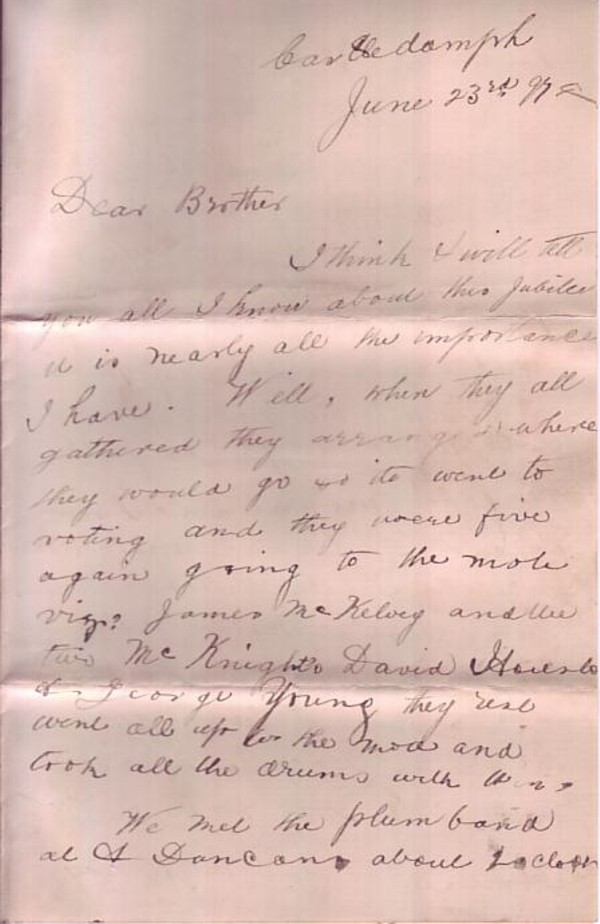 Castledamph
June 23rd 97
Dear Brother
I think I will tell
you all I know about this Jubilee
it is nearly all the importance
I have. Well, when they all
gathered they arranged where
they would go so its went to
voting and they were five
again going to the mote
viz: James McKelvey and the
two McKnights David
& George Young they rest
went all up to the moa and
took all the drums with them,
We met the plumband
at A Duncans about o clock